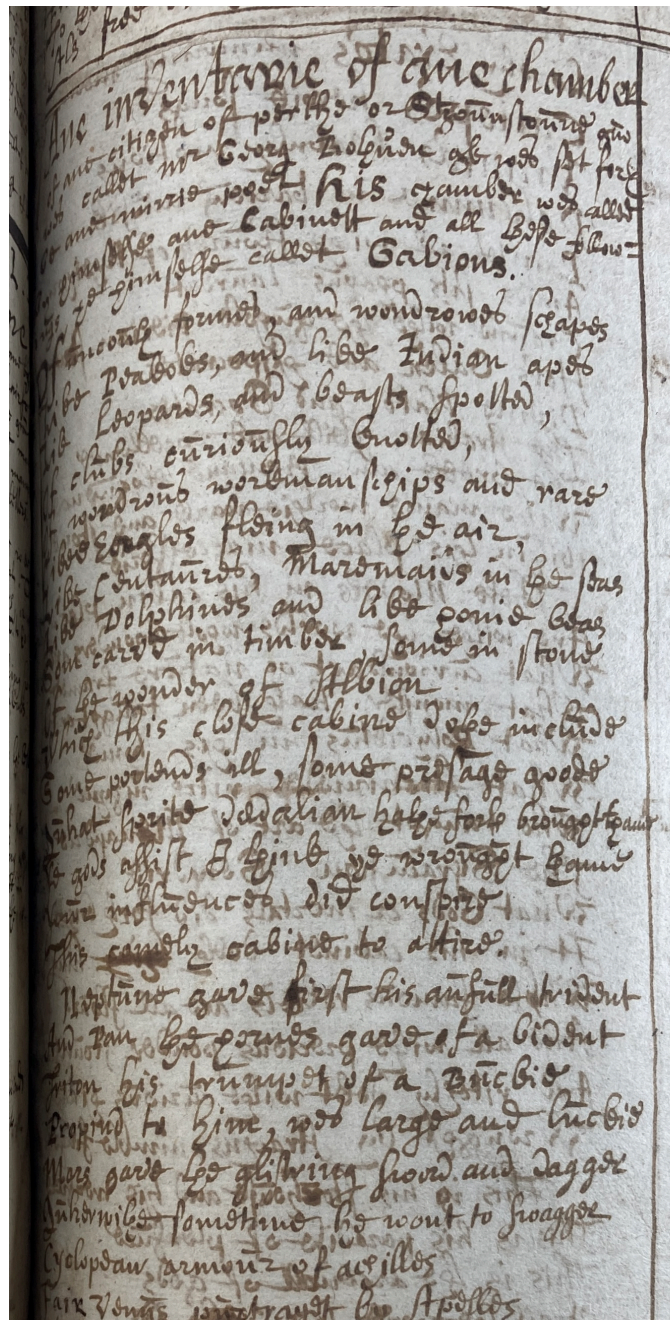 Ane inventarie of ane chamber
of ane citizen of perthe or St Jhounstoune quo
wes callet mr Georg Rothuen qk wes set forth
be ane mirrie poet his chamber wes allet
be himselffe ane Cabinett and all these follow=
ings he himselffe callet Gabions.
Of uncouth formes, and wondrowes schapes
Like Peakoks, and like Indian apes
Like Leopards, and beasts spotted,
Of clubs curiouslly knotted,
Of wondrous workmanschips and rare
Like Eagles fleing in the air,
Like Centaures, Maremaids in the seas
Like Dolphines and like honie beas
Some carv'd in timber, some in stone
Of the wonder of Albion
Which this close cabine doke include
Some portends ill, some presage goode
What sprite dedalian hathe fork brought thame
The gods assist I think yt wrought thame
Your influences did conspire
This comely cabine to attire.
Neptune gave first his aufull trident
And Pan the hornes gave of a bident
Triton his trumpet of a Buckie
Propind to hime, wes large and luckie
Mars gave the glistring sword and dagger
Quherwike sometime he wont to swagger
Cyclopean armour of achilles
Fair Venus purtrayet by Apelles